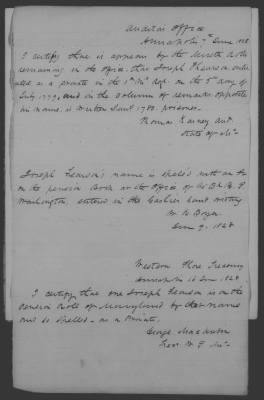 Auditor's Office
Annapolis 7th June 1828
I certify that it appears by the Muster Rolls
remaining in this office, that Joseph Pherson enlis
ted as a private in the 1st Md. Reg. on the 5th day of
July 1779, and in the column of remarks opposite
his name, is written 1780. prisoner.
Thomas Karney Aud.
State of Md.
Joseph Fearson's name is spelled with an
on the pension Book at the Office of the U.S. B.
Washington, entered in the Cashier hand writing
June 9. 1828
Western Shore Treasury
Annapolis 16 June 1828
I certify that one Joseph Fearson is on the
Pension Roll of Maryland by that name
and so spelled - as a Private.
George Mackubin
Trea. W. S. Md.